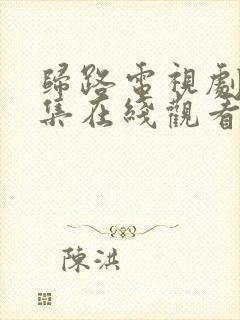 歸路電視劇
集在綫觀看
陳洪